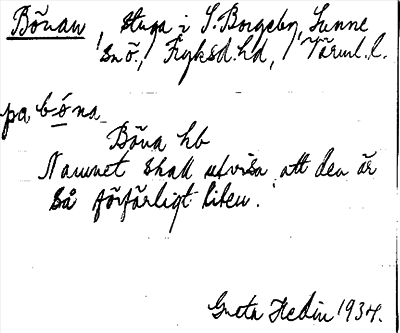 Bönan, stuga i S. Borgeby, Sunne
sn ö., Fryksd. hd, Värml. l.
pa b-ó-na
Böna hb
Namnet skall utvisa att den är
så förfärligt liten.
Greta Hedin 1934.